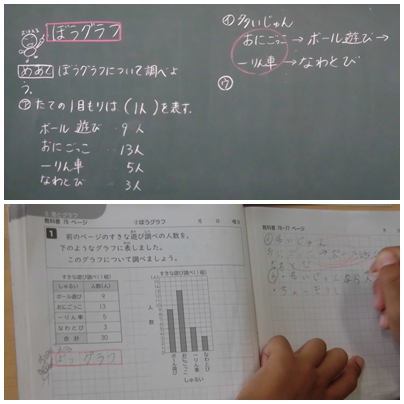 ぼうグラフ
めあて ぼうグラフについて調べよ
う。
ア たての1目もりは(1人)を表す。
ボール遊び 9人
おにごっこ 13人
一りん車 5人
なわとび 3人
イ 多いじゅん
おにごっこ→ボール遊び→
一りん車→なわとび
ウ
教科書 76 ページ
ぼうグラフ
月 日
1 前のページのすきな遊び調べの人数を、
下のようなグラフに表しました。
このグラフについて調べましょう。
すきな遊び調べ(1組)
しゅるい 人数(人)
ボール遊び 9
おにごっこ 13
一りん車 5
なわとび 3
合計 30
すきな遊び調べ(1組)
人数
ボール遊び
おにごっこ
一りん車
なわとび
しゅるい
ぼうグラフ
教科書 76~77 ページ
月 日
多いじゅん